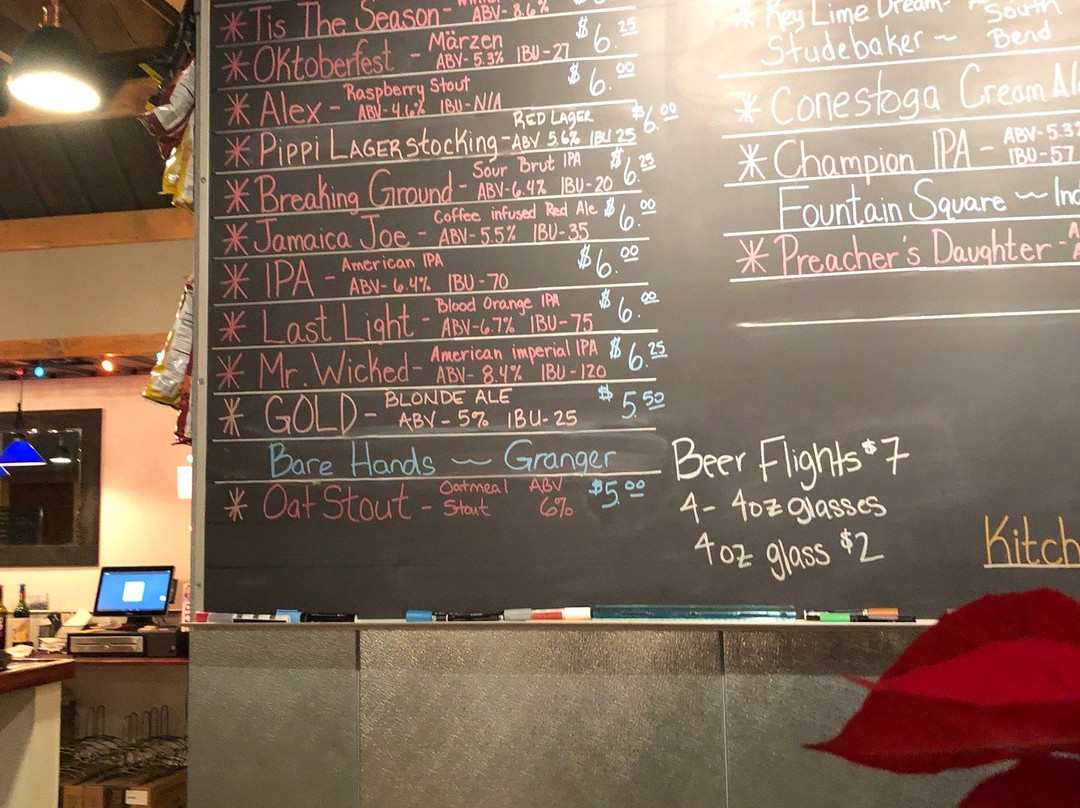 * Tis The Season - ABV-8.6% $6.25
* Oktoberfest - Märzen ABV-5.3% IBU-27 $6.00
* Alex - Raspberry Stout ABV-4.6% IBU-N/A
* Pippi LAGERstocking - RED LAGER ABV 5.6% IBU 25 $6.00
* Breaking Ground - Sour Brut IPA ABV-6.4% IBU-20 $6.25
* Jamaica Joe - Coffee infused Red Ale ABV-5.5% IBU-35 $6.00
* IPA - American IPA ABV-6.4% IBU-70 $6.00
* Last Light - Blood Orange IPA ABV-6.7% IBU-75 $6.00
* Mr. Wicked - American imperial IPA ABV-8.4% IBU-120 $6.25
* GOLD - BLONDE ALE ABV-5% IBU-25 $5.50
Bare Hands ~ Granger
* Oat Stout - Oatmeal Stout ABV 6% $5.00
* Key Lime Dream-
Studebaker ~ South Bend
* Conestoga Cream Al
* Champion IPA - ABV-5.3% IBU-57
Fountain Square ~ Ind
* Preacher's Daughter -
Beer Flights $7
4- 4oz glasses
4oz glass $2
Kitch